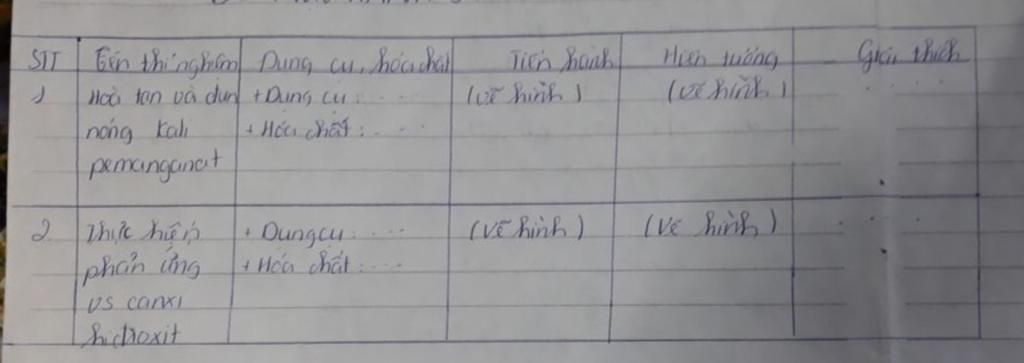 STT Tên thí nghiệm Dụng cụ, hóa chất Tiến hành Hiện tượng Giải thích
1 Hoà tan và đun + Dụng cụ: .... (Vẽ hình) (Vẽ hình) . . .
nóng Kali + Hóa chất: ....
pemanganat
2 Thực hiện + Dụng cụ: .... (Vẽ hình) (Vẽ hình) . . .
phản ứng + Hóa chất: ....
vs canxi
hidroxit